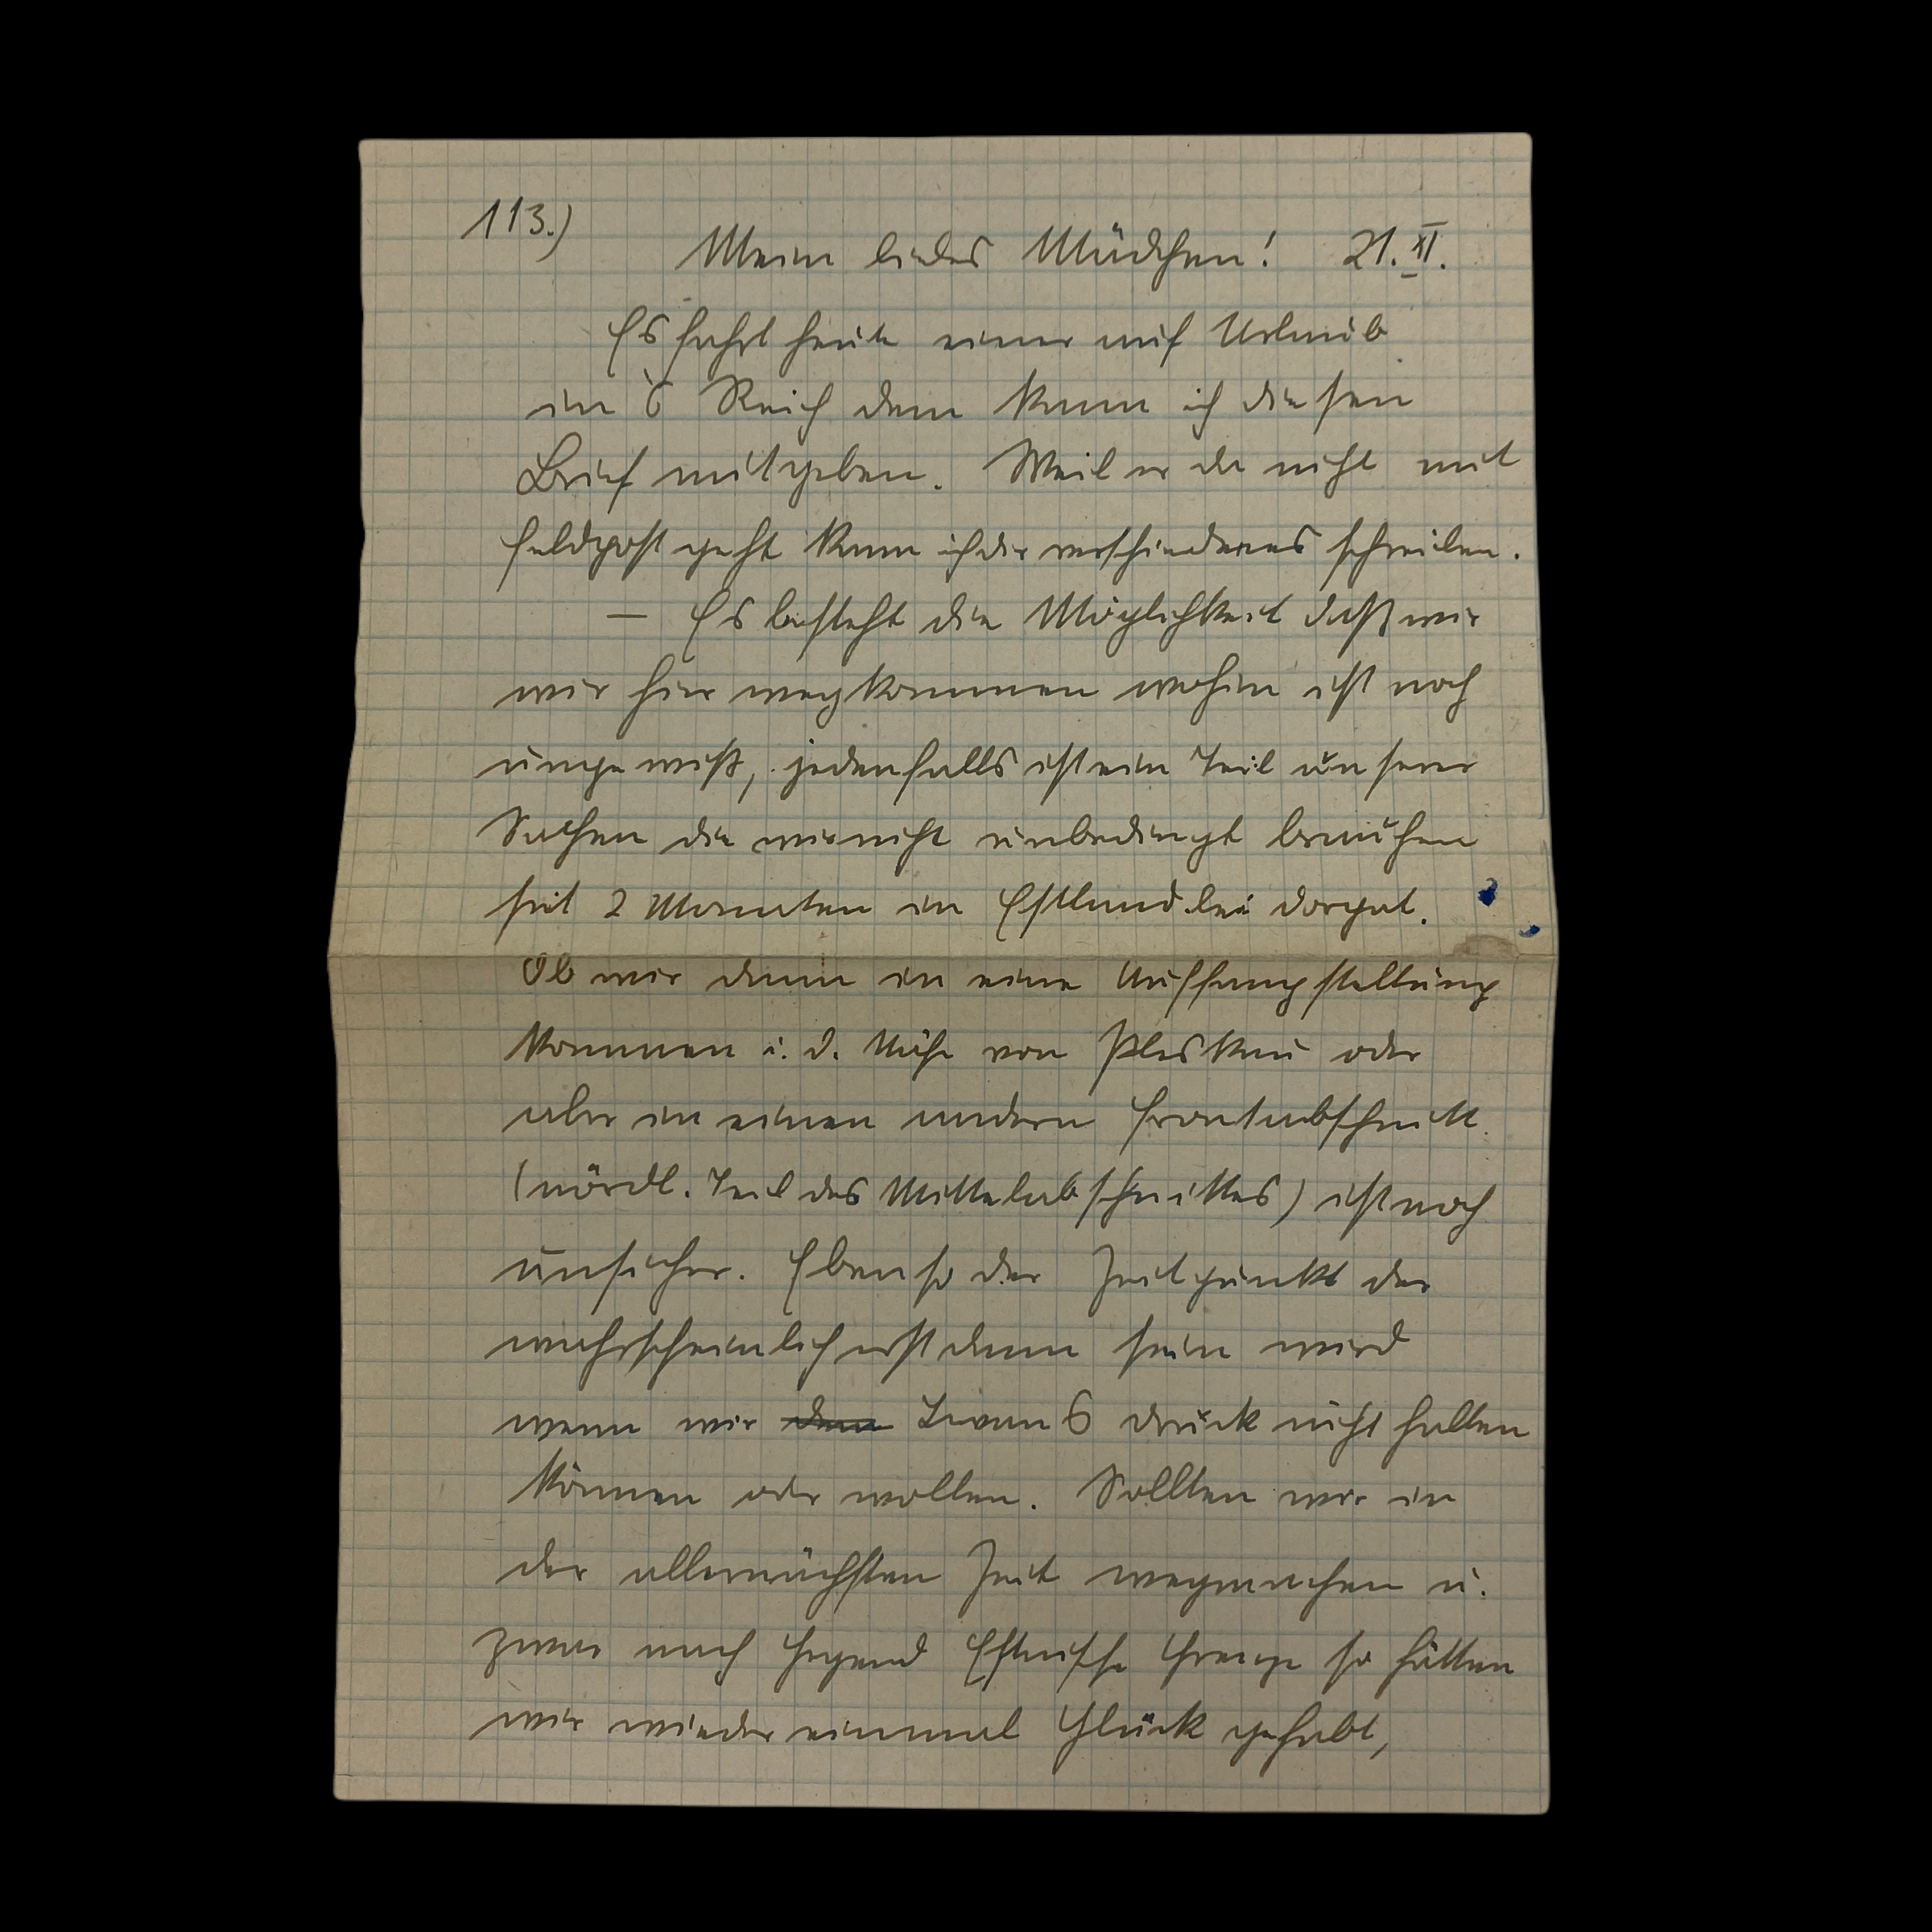 113.)
Mein liebes Mädchen! 21.XI.
Es fährt heute einer auf Urlaub
in's Reich dem kann ich diesen
Brief mitgeben. Weil er da nicht mit
Feldpost geht kann ich dir verschiedenes schreiben.
— Es besteht die Möglichkeit daß wir
wir hier wegkommen wohin ist noch
ungewiß, jedenfalls ist ein Teil unserer
Sachen die wir nicht unbedingt brauchen
seit 2 Monaten in Estland bei Dorpat.
Ob wir dann in eine Auffangstellung
kommen i. d. Nähe von Pleskau oder
aber in einen andern Frontabschnitt
(nördl. Teil des Mittelabschnittes) ist noch
unsicher. Ebenso der Zeitpunkt der
wahrscheinlich erst dann sein wird
wenn wir dem Iwans druck nicht halten
können oder wollen. Sollten wir in
der allernächsten Zeit wegmachen u.
zwar nach Gegend Estnische Grenze so hätten
wir wieder einmal Glück gehabt,